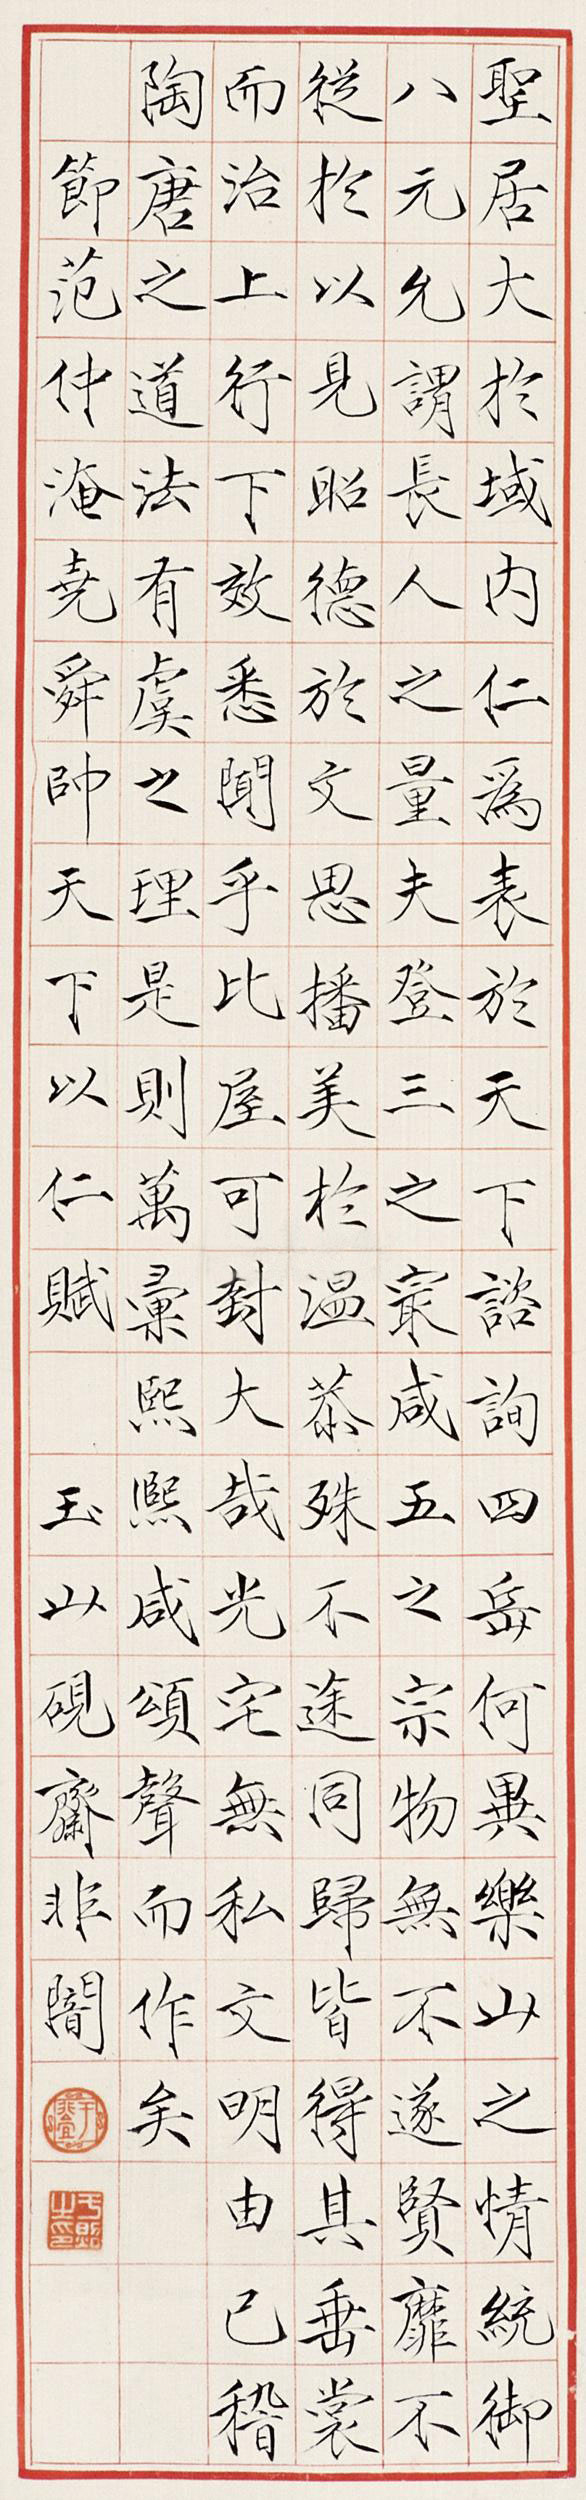 聖居大於域内仁爲表於天下諮詢四岳何異樂山之情統御
八元允謂長人之量夫登三之㝡咸五之宗物無不遂賢靡不
從於以見昭德於文思播美於温恭殊不途同歸皆得其垂裳
而治上行下效悉聞乎比屋可封大哉光宅無私文明由己稽
陶唐之道法有虞之理是則萬彙熙熙咸頌聲而作矣
節范仲淹堯舜帥天下以仁賦 玉山硯齋非闇